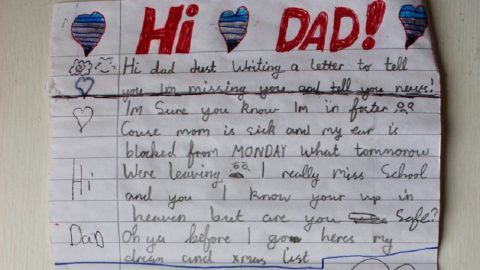 Hi DAD!
Hi dad Just Writing a letter to tell
you Im missing you and tell you news!
Im Sure you know Im in foster
Couse mom is sick and my ear is
blocked from MONDAY What tommorow
Hi Were leaving I really miss School
and you I know your up in
heaven but are you Safe?
Dad Oh ya before I go heres my
dream and xmas list